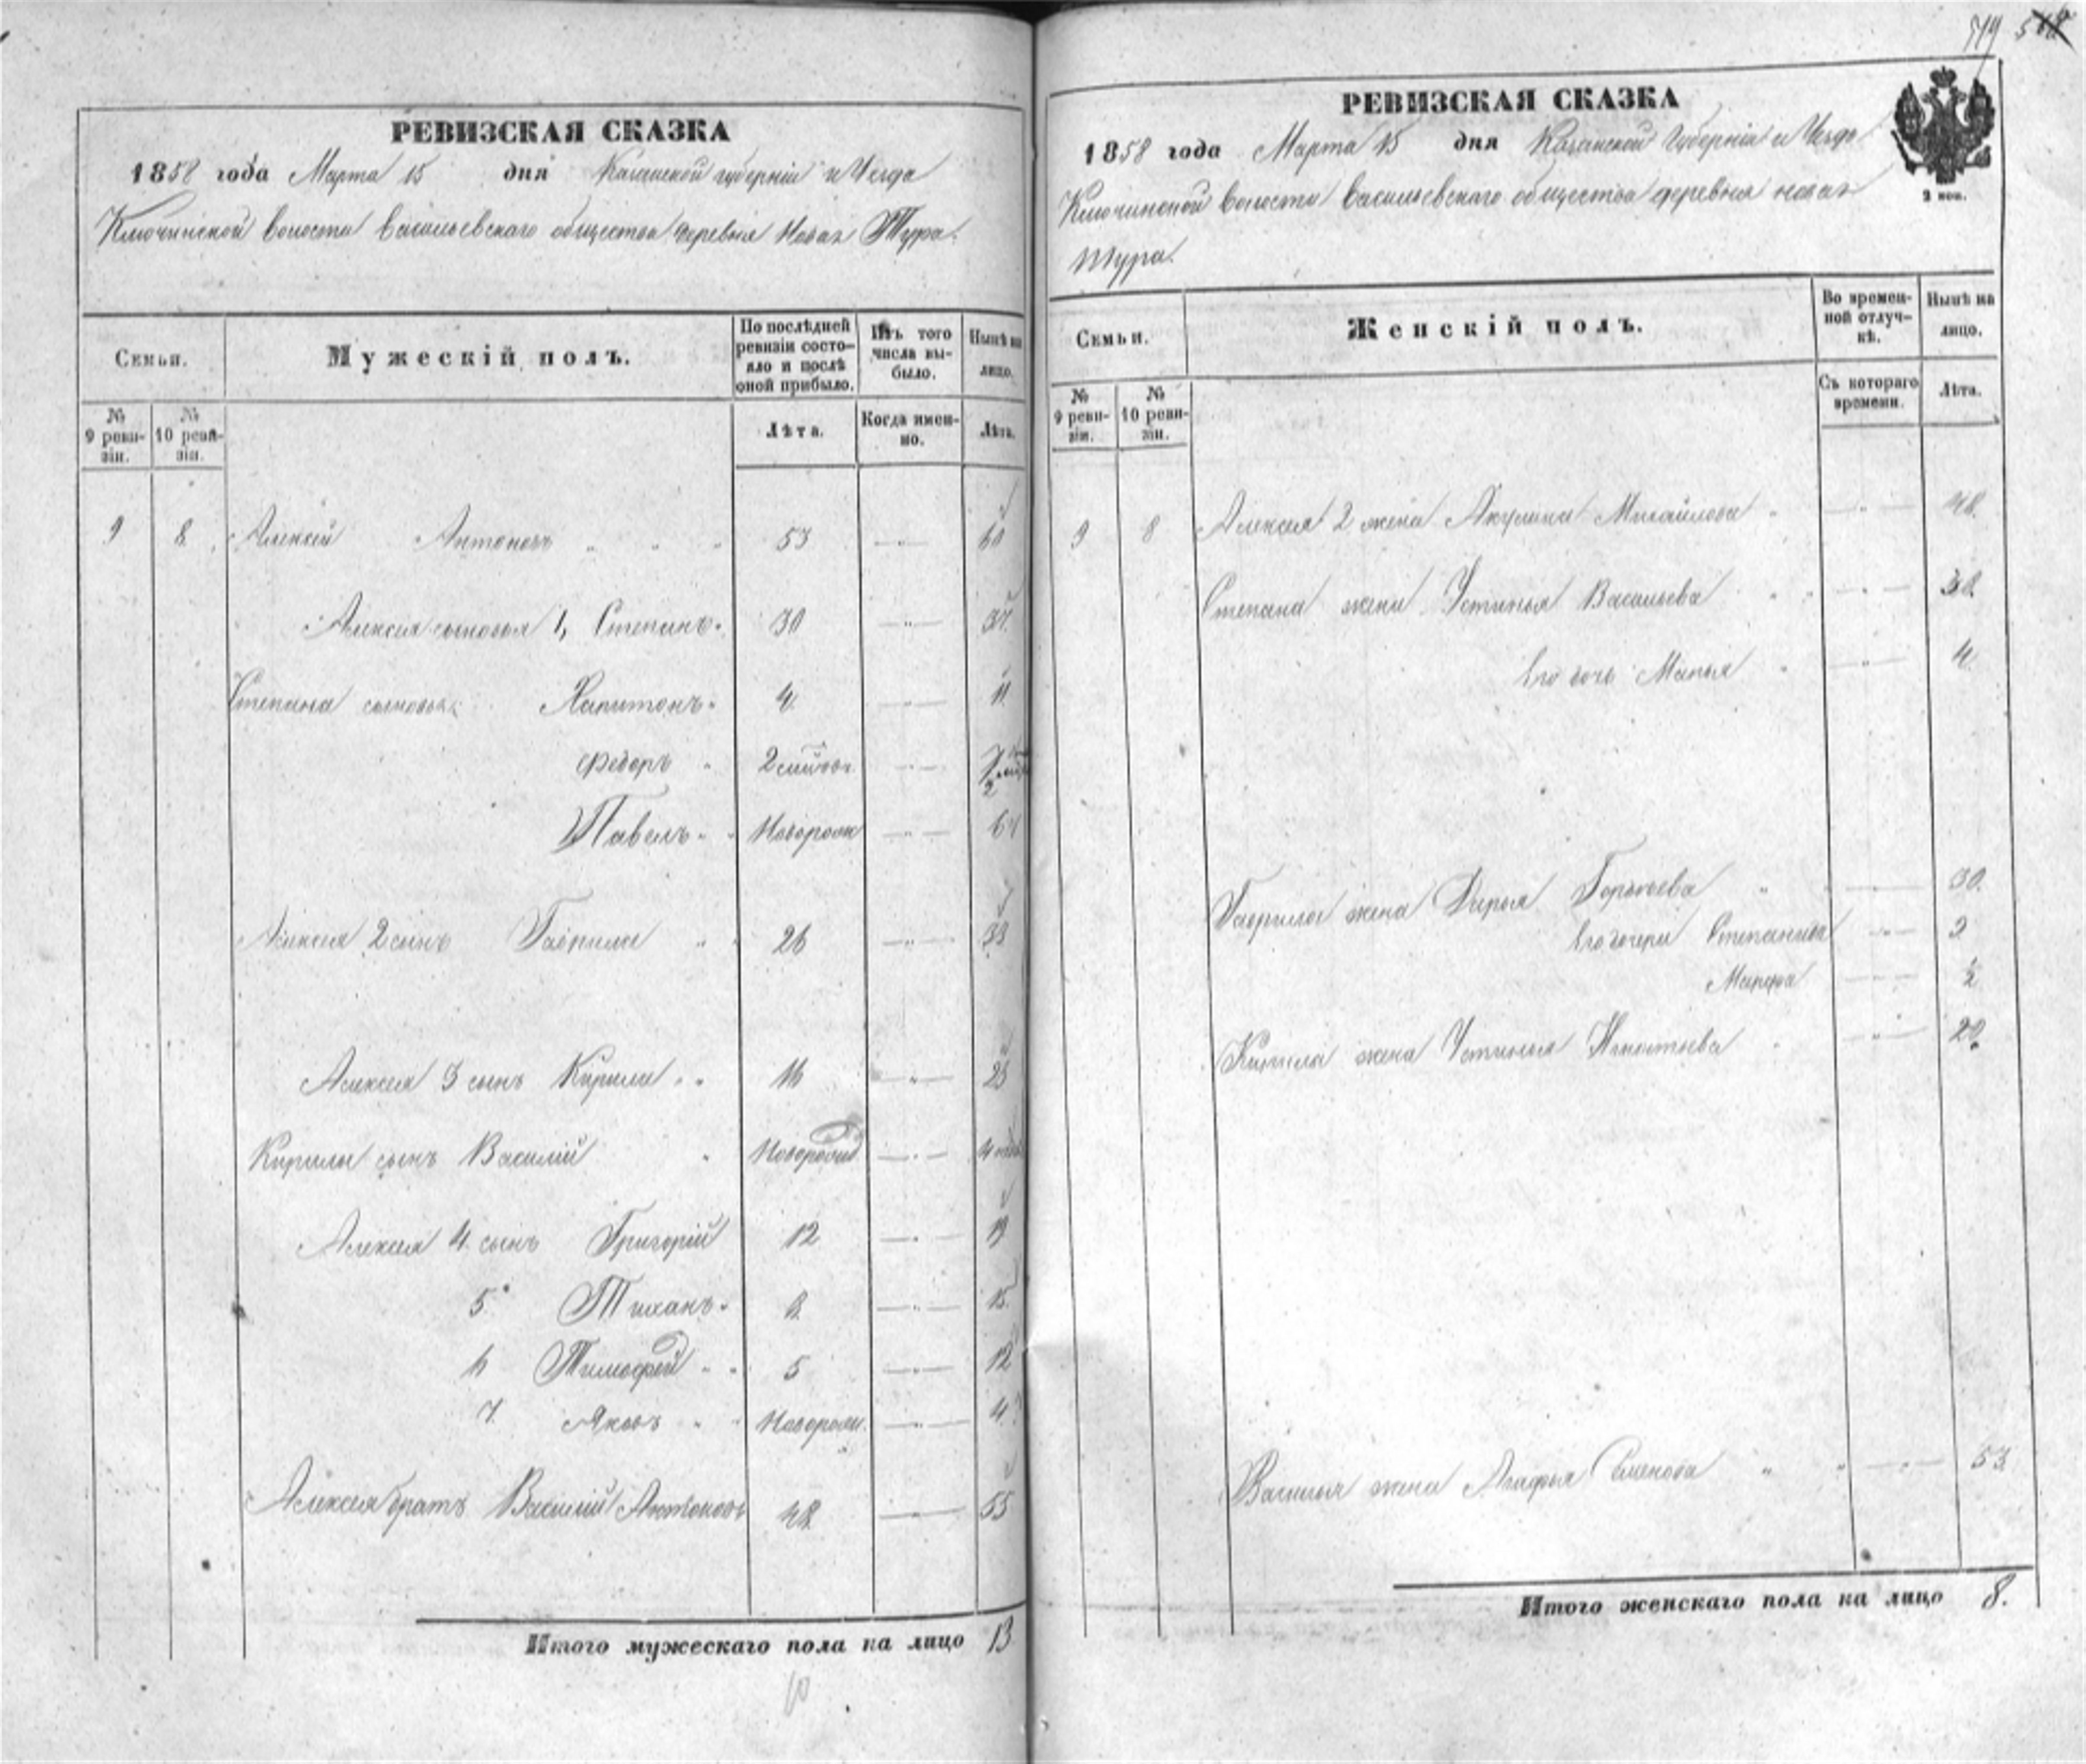 РЕВИЗСКАЯ СКАЗКА
1858 года Марта 15 дня Казанской губернии и Уезда
Ключинской волости Васильевского общества деревня Новая Тура.
Семьи.
Мужескій полъ.
По послѣдней ревизіи состояло и послѣ оной прибыло.
Изъ того числа выбыло.
Нынѣ на лицо.
№ 9 ревизіи.
№ 10 ревизіи.
Лѣта.
Когда именно.
Лѣта.
9 8 Алексей Антоновъ 53 60
Алексея сыновья 1, Степанъ 30 37
Степана сыновья Капитонъ 4 11
Федоръ 2
Павелъ Новорож 6
Алексея 2 сынъ Гаврила 26 33
Алексея 3 сынъ Кирила 16 23
Кирилы сынъ Василій 4
Алексея 4 сынъ Григорій 12 19
5 Тиханъ 8 15
6 Тимофей 5 12
7 Яковъ Новорож. 4
Алексея братъ Василий Антоновъ 48 55
Итого мужескаго пола на лицо 13
519
РЕВИЗСКАЯ СКАЗКА
1858 года Марта 15 дня Казанской Губерніи и Уезда
2 коп.
Ключинской волости Васильевского общества деревня новая
Тура.
Семьи.
Женскій полъ.
Во временной отлучкѣ.
Нынѣ на лицо.
№ 9 ревизіи.
№ 10 ревизіи.
Съ котораго времени.
Лѣта.
9 8 Алексея 2 жена Акулина Михайлова 48
Степана жена Устинья Васильева 38
Его дочь Марья 4
Гаврилы жена Дарья 30
Его дочери Степанида 2
Марфа ½
Кирила жена Устинья Игнатьева 20
Василья жена Агафья Семенова 53
Итого женскаго пола на лицо 8.